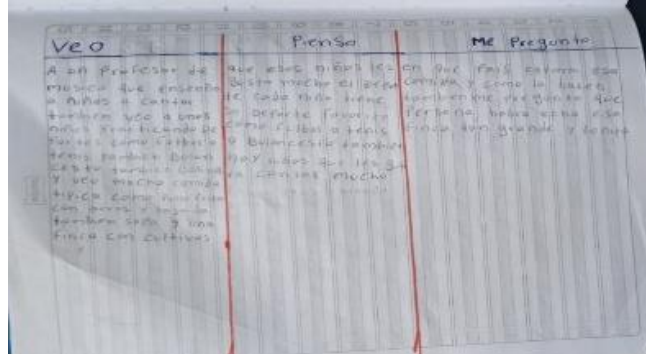 Veo
A un Profesor de
musica que enseña
a niños a cantar
tambien veo a unos
niños practicando De
Portes como futbol
tenis
y veo mucha comida
tipica como
con arroz y
tambien y una
finca con cultivos
Pienso
que esos niños les
gusta mucho el
te cada niño tiene
su deporte favorito
como futbol o tenis
o baloncesto tambien
hay niños que les gu
ta cantar mucho
Me Pregunto
en que País estara esa
comida y como la hacen
tambien me pregunto que
Persona habra echo esa
finca tan grande y bonita